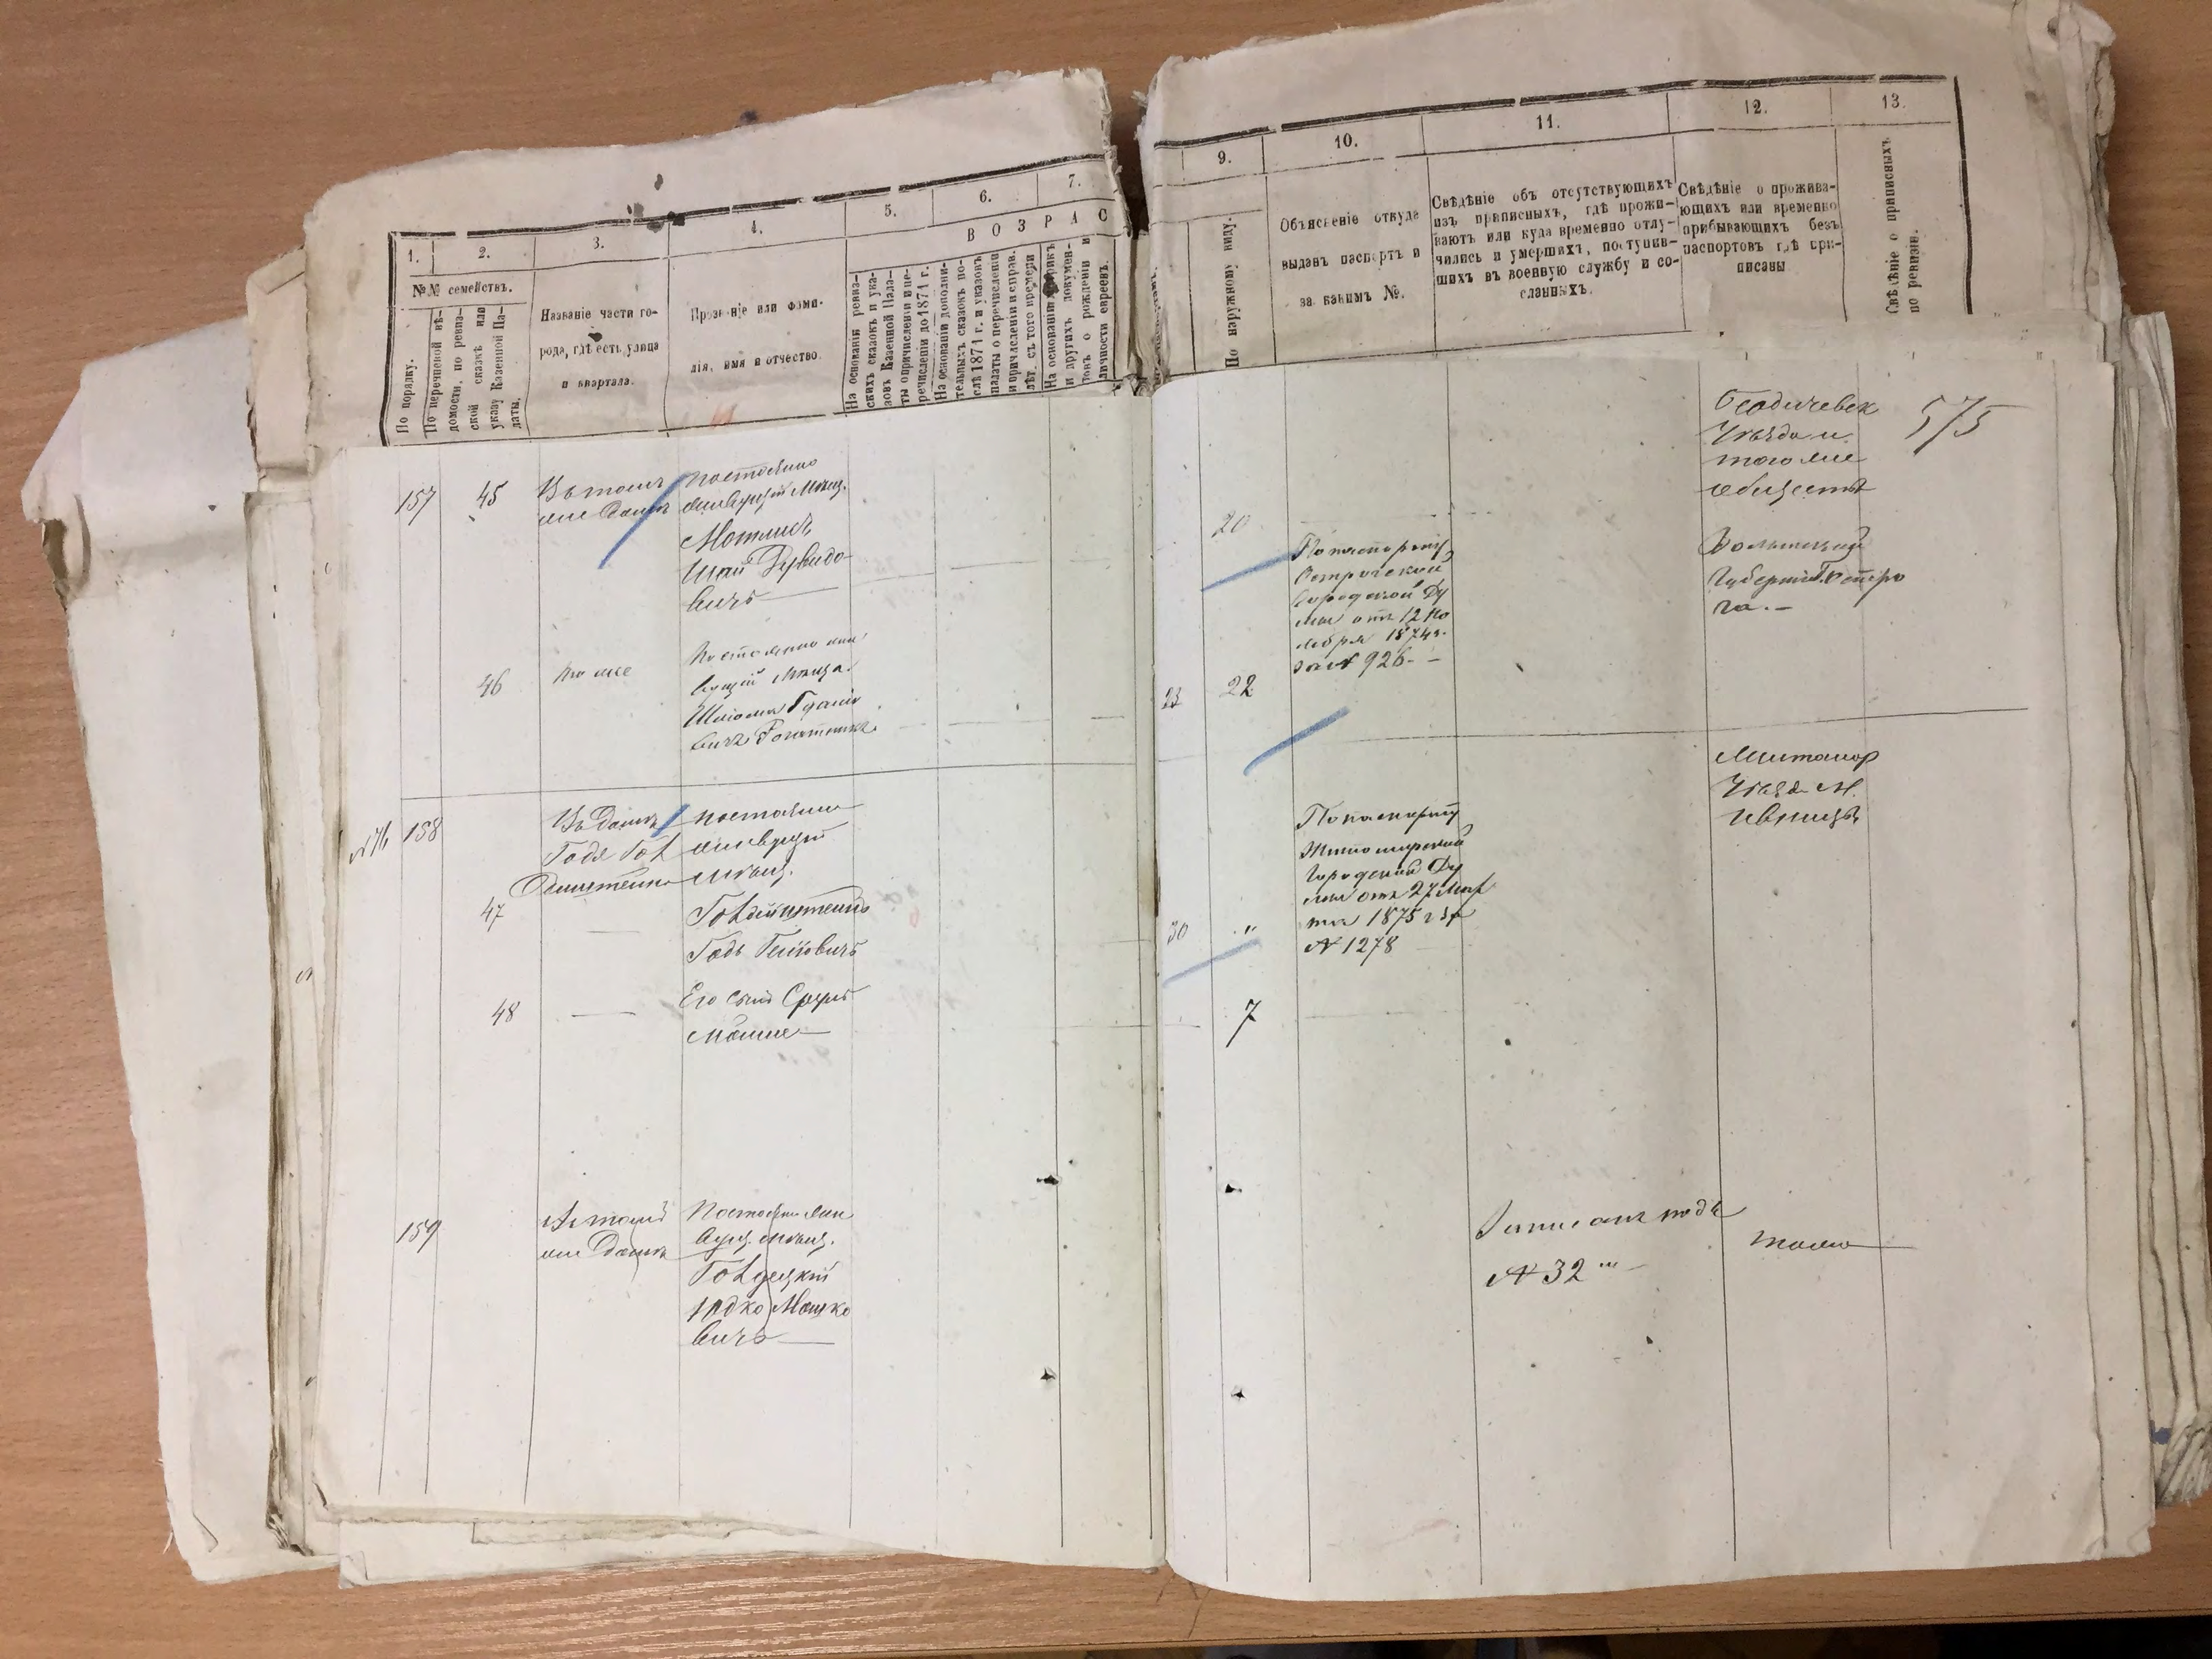 1.
2.
3.
4.
5.
6.
7.
В О З Р А С
№№ семействъ.
По порядку.
По перечневой вѣ-
домости, по ревиз-
ской сказкѣ или
указу Казенной Па-
латы.
Названіе части го-
рода, гдѣ есть, улица
и квартала.
Прозваніе или фами-
лія, имя и отчество.
На основаніи ревиз-
скихъ сказокъ и ука-
зовъ Казенной Пала-
ты о причисленіи и пе-
речисленіи до 1871 г.
На основаніи дополни-
тельныхъ сказокъ по-
слѣ 1871 г. и указовъ
палаты о перечисленіи
и причисленіи и справ.
лѣт. съ того времени
На основаніи метрикъ
и другихъ докумен-
товъ о рожденіи и
личности евреевъ.
157
45
Въ томъ
же Домѣ
постоянно
живущій Мѣщ.
Мотлисъ
Шая Дувидо-
вичъ
46
то же
Постоянно жи
вущій Мѣща.
Шліома
158
47
Въ Домѣ
Годя Гол
Постоянно
живущій
Мѣщ.
Гольдштейнъ
Годь
48
Его сынъ Сруль
Мошко
159
Въ томъ
же Домѣ
Постоянно жи
вущ. Мѣщ.
Мошко
вичъ
9.
10.
11.
12.
13.
По наружному виду.
Объясненіе откуда
выданъ паспортъ и
за какимъ №.
Свѣдѣніе объ отсутствующихъ
изъ приписныхъ, гдѣ прожи-
ваютъ или куда временно отлу-
чились и умершихъ, поступив-
шихъ въ военную службу и со-
сланныхъ.
Свѣдѣніе о прожива-
ющихъ или временно
прибывающихъ безъ
паспортовъ гдѣ при-
писаны
Свѣдѣніе о приписныхъ
по ревизіи.
575
Бердичевск
Уѣзда и
того же
общества
20
По паспорту
Острожской
Городской Ду
мы отъ 12 Но
ября 1874 г.
за № 926
Волынской
Губерніи Г. Остро
га.
23
22
Житомир
Уѣзд. М.
Ивницы
По паспорту
Житомирской
Городской Ду
мы отъ 27 Мар
та 1875 г за
№ 1278
30
"
7
Записанъ подъ
№ 32
тоже